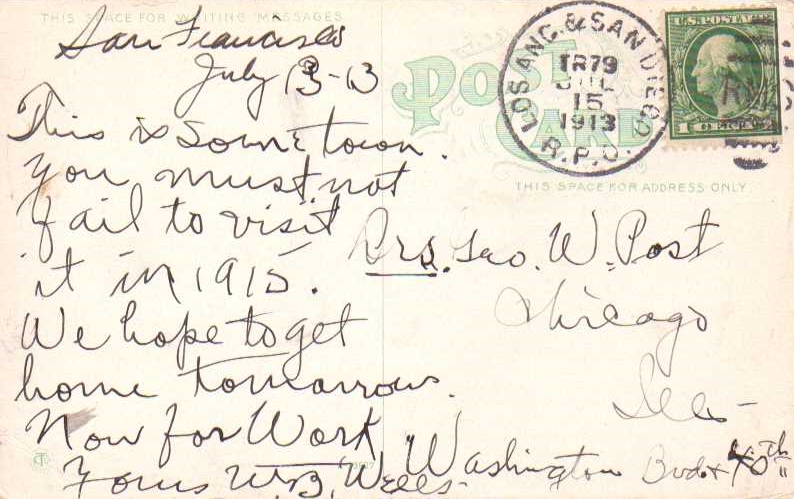 THIS SPACE FOR WRITING MESSAGES
San Francisco
July 13-13
This is some town.
You must not
fail to visit
it in 1915.
We hope to get
home tomorrow.
Now for Work
Yours W.B. Wells
POST CARD
LOS ANG. & SAN DIEGO
TR79
JUL
15
1913
R.P.O.
U.S. POSTAGE
THIS SPACE FOR ADDRESS ONLY
Drs. Geo. W. Post
Chicago
Ills-
Washington Bvd & 40th